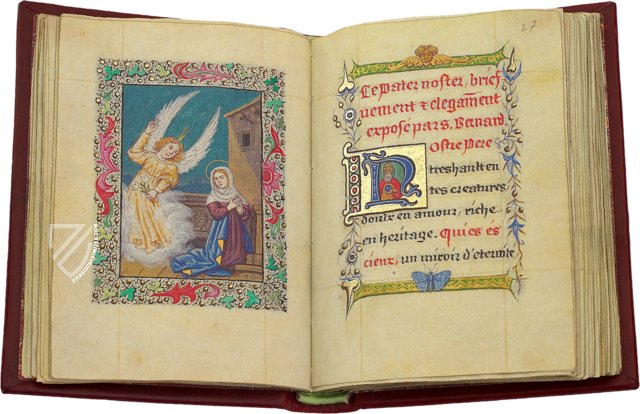 27
Le Pater noster, brief
uement & elegamment
exposé par s. Bernard
Nostre Pere
treshault en
tes creatures
doulx en amour, riche
en heritage. Qui es es
cieux, un miroir d'eternite